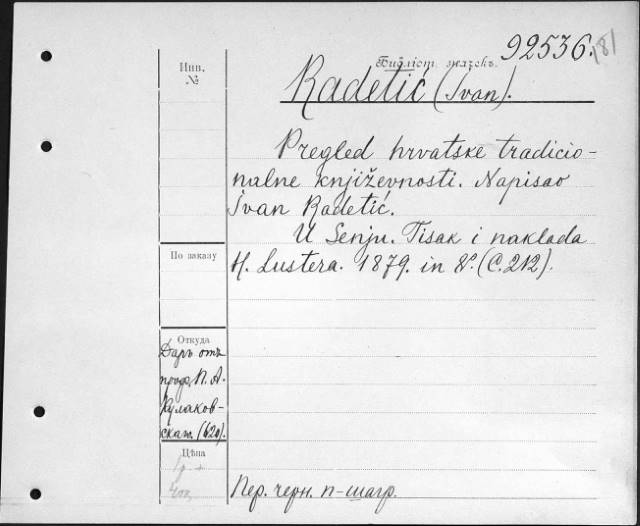 92536.
Инв.
№
Radetić (Ivan).
Pregled hrvatske tradicio-
nalne književnosti. Napisao
Ivan Radetić.
U Senju. Tisak i naklada
H. Lustera. 1879. in 8°. (С. 212).
По заказу
Откуда
Даръ отъ
проф. П. А.
Кулаков-
скаго. (620).
Цѣна
Пер. черн. п-шагр.